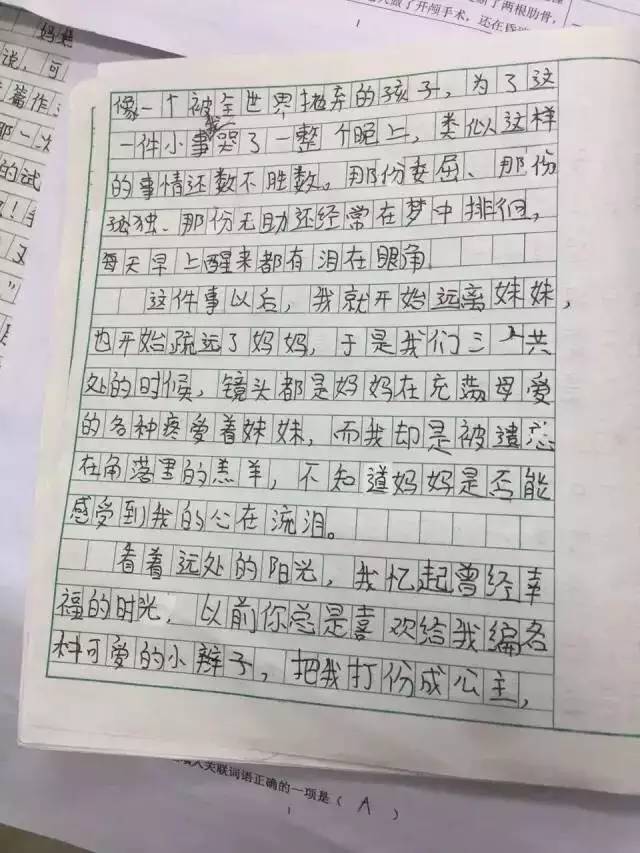 了两根肋骨，
做了开颅手术，还在昏
1
妈妈
说，可
篇作
那一次
的试
！
又
”
像一个被全世界抛弃的孩子，为了这
一件小事我哭了一整个晚上，类似这样
的事情还数不胜数。那份委屈、那份
孤独、那份无助还经常在梦中排徊，
每天早上醒来都有泪在眼角
这件事以后，我就开始远离妹妹，
也开始疏远了妈妈，于是我们三人共
处的时候，镜头都是妈妈在充满母爱
的各种疼爱着妹妹，而我却是被遗忘
在角落里的羔羊，不知道妈妈是否能
感受到我的心在流泪。
看着远处的阳光，我忆起曾经幸
福的时光，以前你总是喜欢给我编各
种可爱的小辫子，把我打份成公主，
入关联词语正确的一项是（ A ）
1